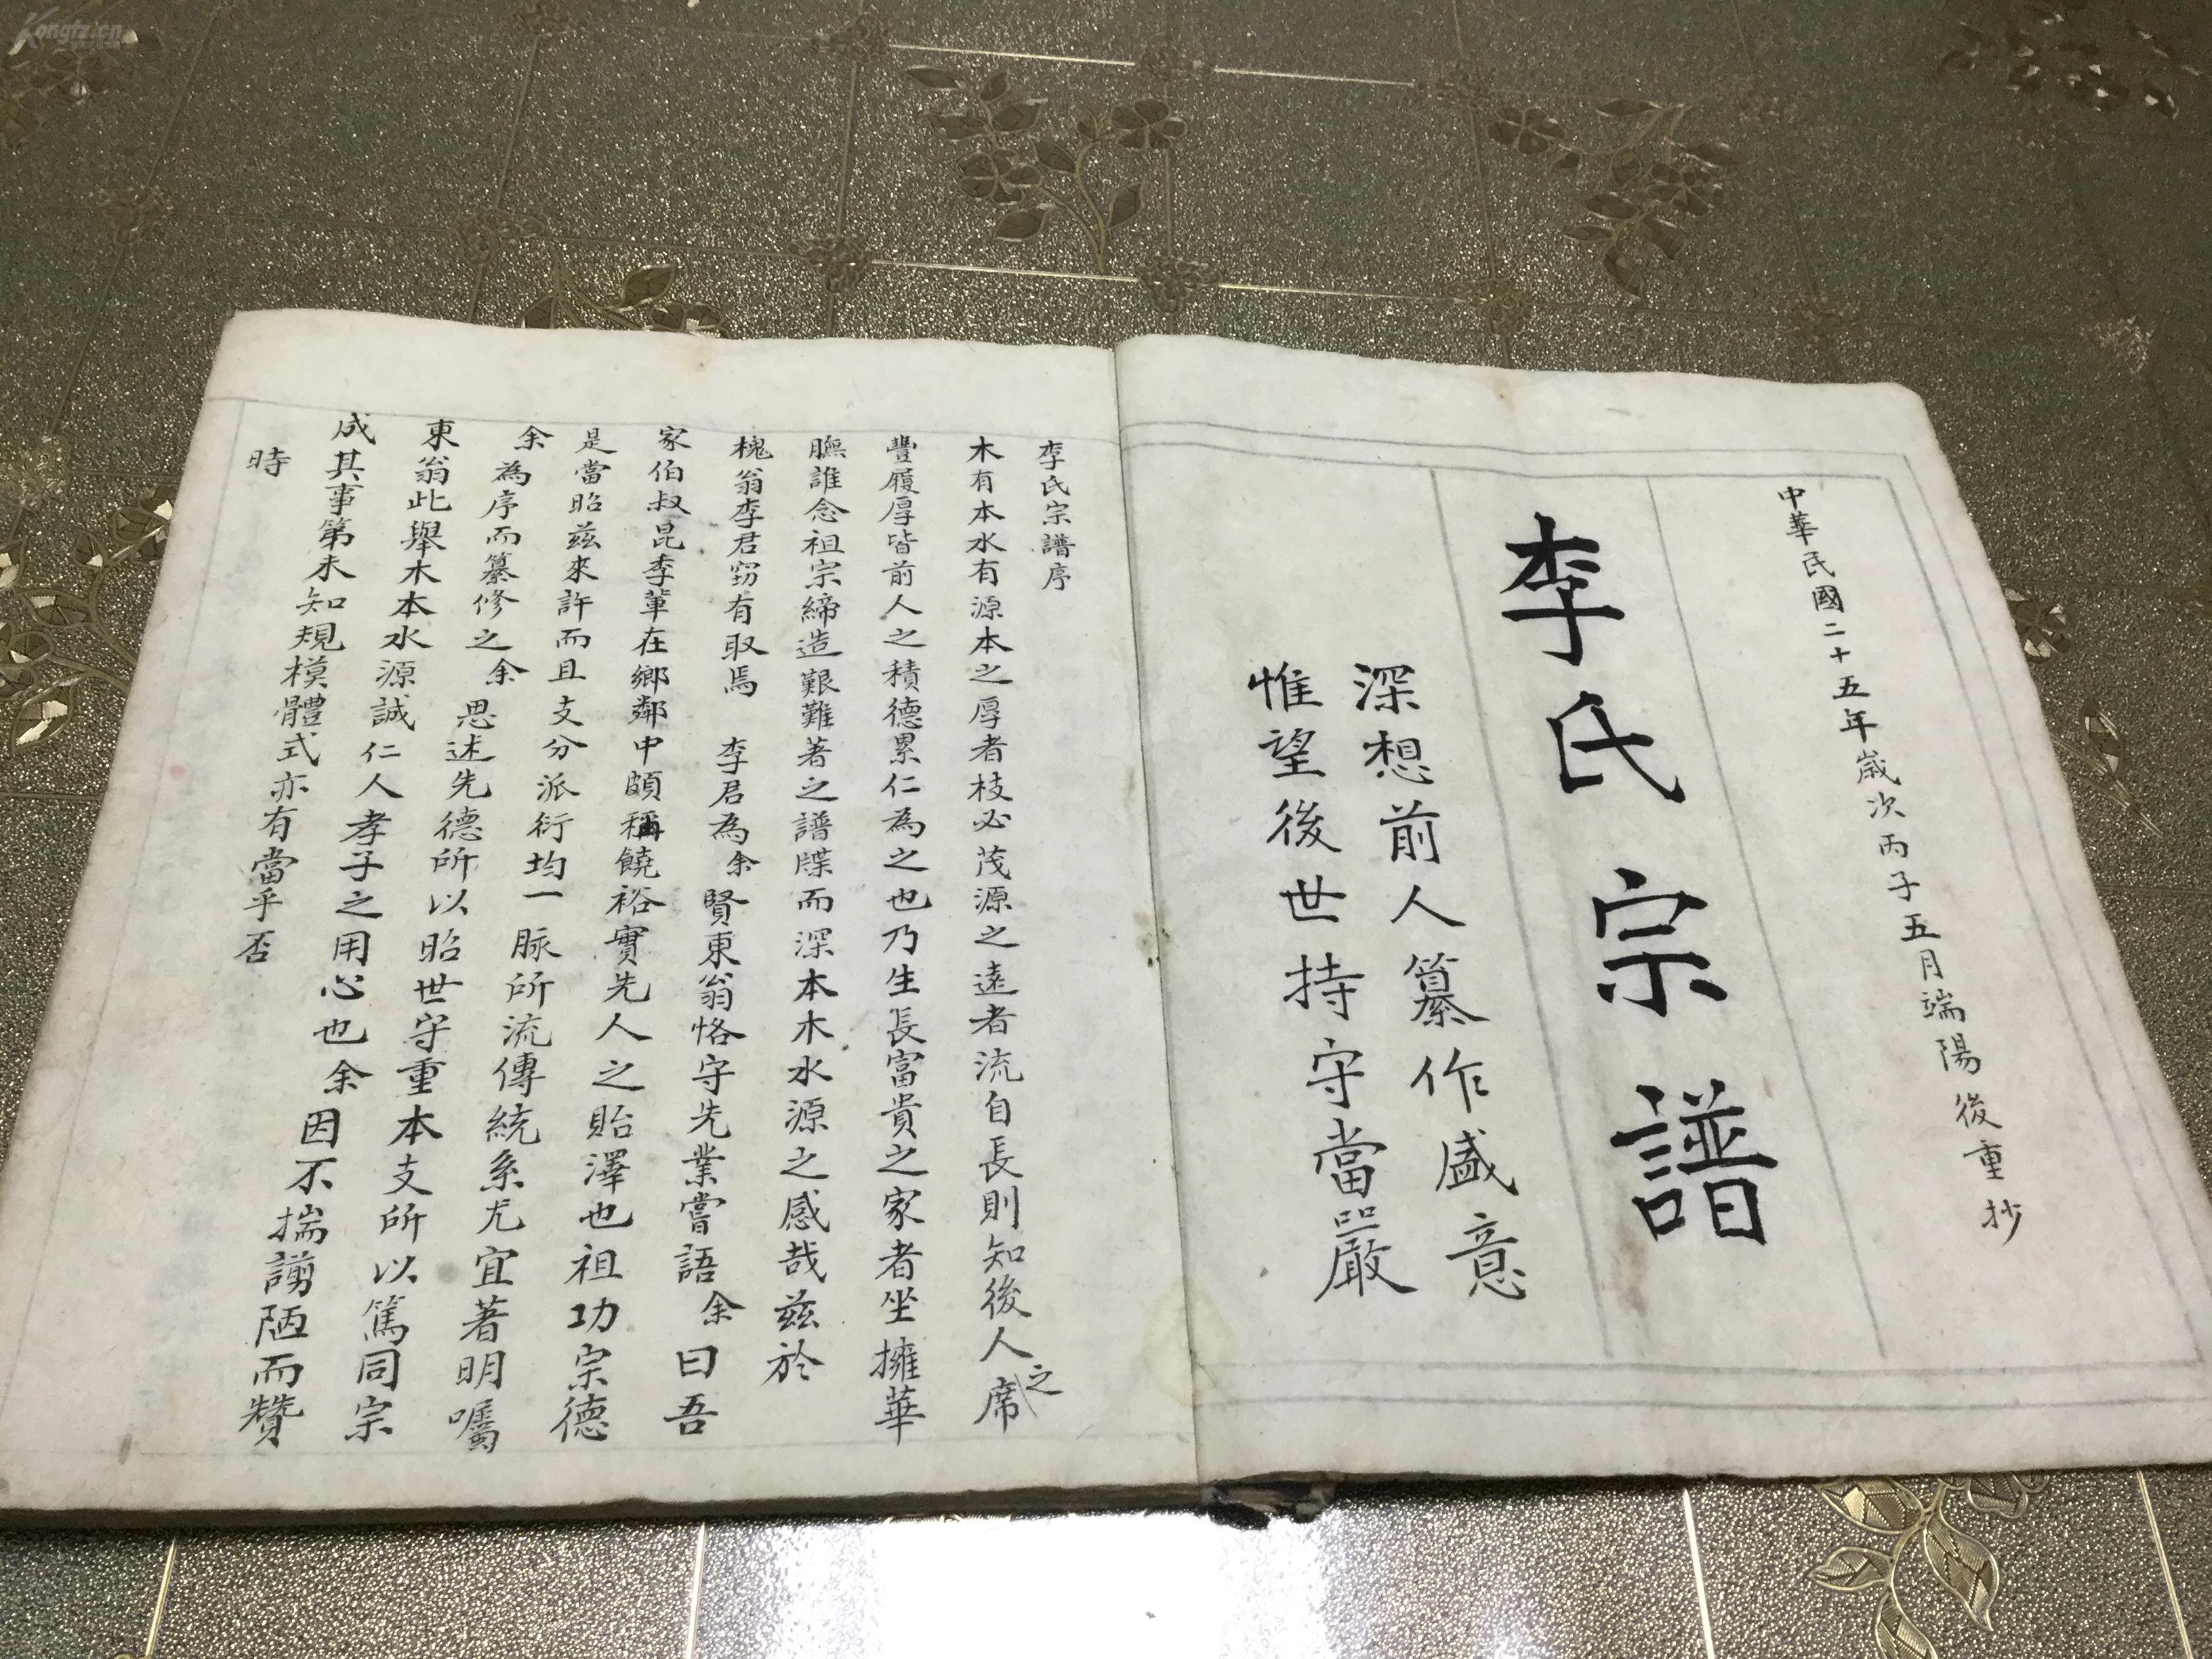 中華民國二十五年歲次丙子五月端陽後重抄
李氏宗譜
深想前人纂作盛意
惟望後世持守當嚴
李氏宗譜序
木有本水有源本之厚者枝必茂源之遠者流自長則知後人之席
豐履厚皆前人之積德累仁為之也乃生長富貴之家者坐擁華
膴誰念祖宗締造艱難著之譜牒而深本木水源之感哉兹於
槐翁李君窃有取焉 李君為余賢東翁恪守先業嘗語余曰吾
家伯叔昆季輩在鄉鄰中頗稱饒裕實先人之貽澤也祖功宗德
是當昭兹來許而且支分派衍均一脉所流傳統系尤宜著明囑
余為序而纂修之余思述先德所以昭世守重本支所以篤同宗
東翁此舉木本水源誠仁人孝子之用心也余因不揣謭陋而贊
成其事第未知規模體式亦有當乎否
時
Kongfz.cn